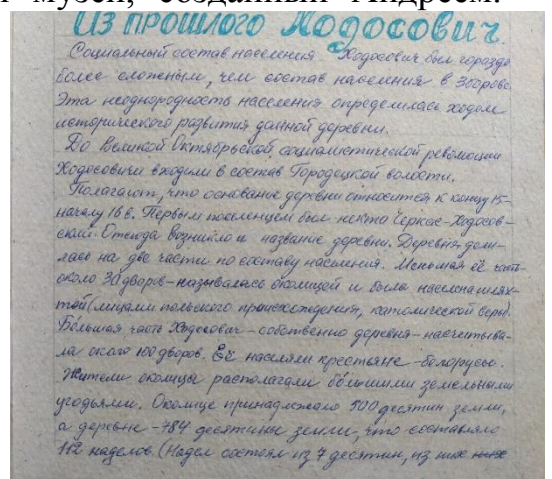 музей, созданный Андреем.
Из прошлого Ходосович
Социальный состав населения Ходосович был гораздо
более сложным, чем состав населения в Зборове.
Эта неоднородность населения определилась ходом
исторического развития данной деревни.
До Великой Октябрьской социалистической революции
Ходосовичи входили в состав Городецкой волости.
Полагают, что основание деревни относится к концу 15-
началу 16 в. Первым поселенцем был некто Черкас-Ходосов-
ский. Отсюда возникло и название деревни. Деревня дели-
лась на две части по составу населения. Меньшая её часть
около 30 дворов-называлась околицей и была населена шлях-
той (лицами польского происхождения, католической веры).
Бо́льшая часть Ходосович-собственно деревня-насчитыва-
ла около 100 дворов. Её населяли крестьяне-белорусы.
Жители околицы располагали бо́льшими земельными
угодьями. Околице принадлежало 500 десятин земли,
а деревне-784 десятины земли, что составляло
112 наделов. (Надел состоял из 7 десятин, из них